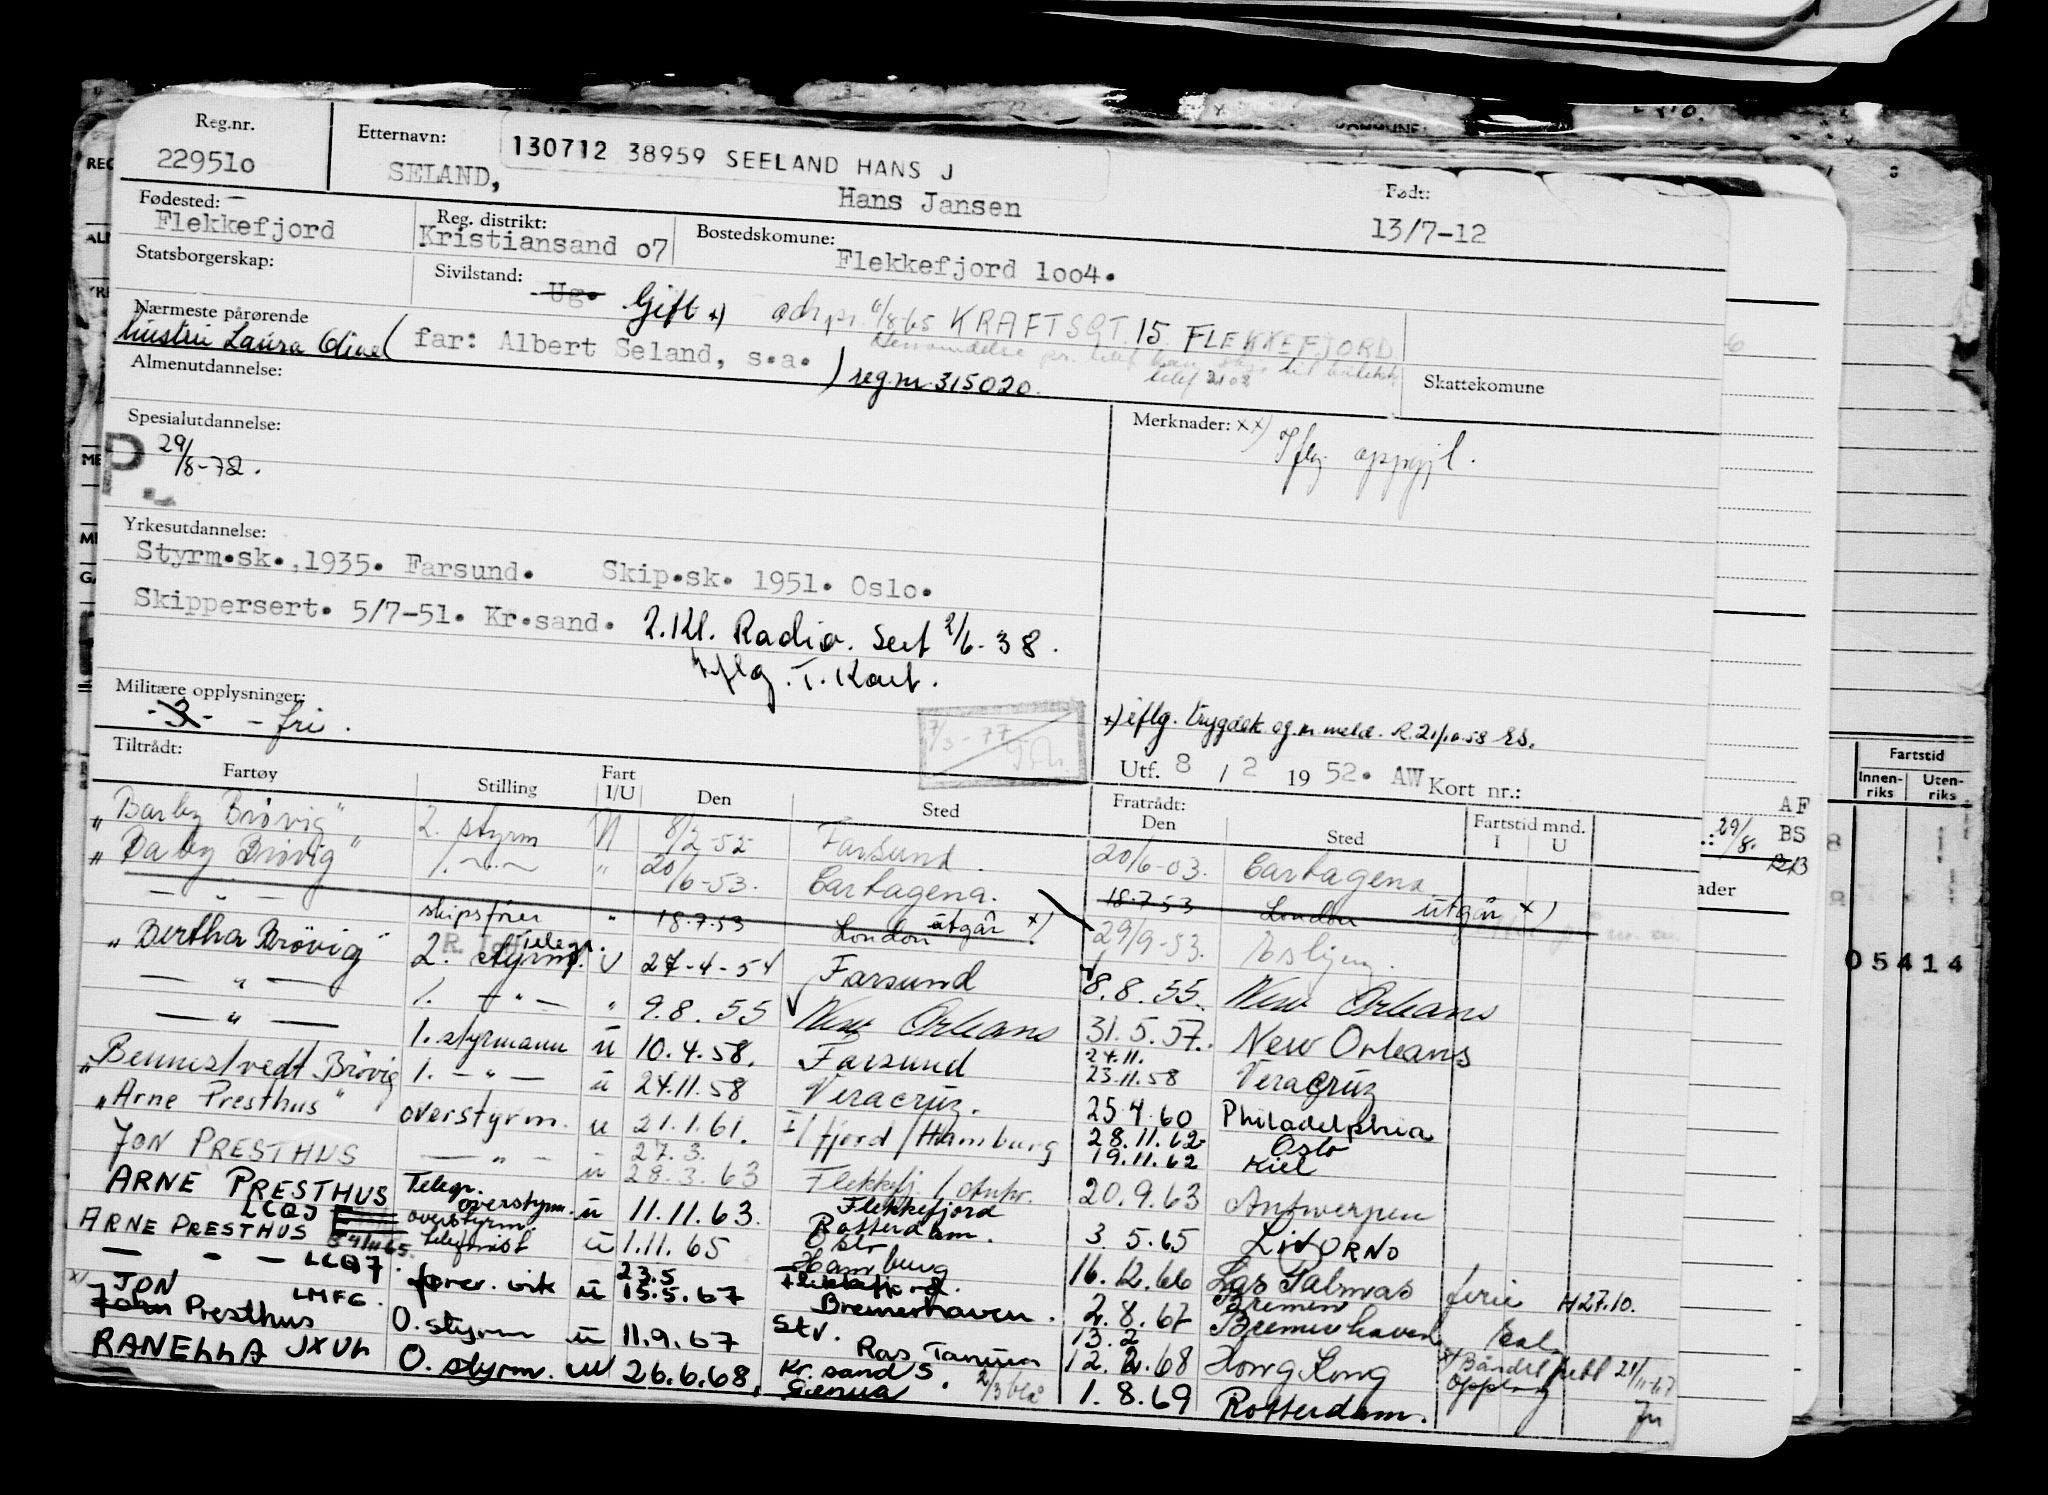 Reg.nr. Etternavn: 130712 38959 SEELAND HANS J
229510 SELAND, Hans Jansen Født: 13/7-12
Fødested: Flekkefjord Reg. distrikt: Kristiansand o7 Bostedskomune: Flekkefjord 1oo4.
Statsborgerskap: Sivilstand: Ug. Gift x) adr. pr. 6/8-65 KRAFTSGT. 15 FLEKKEFJORD
Nærmeste pårørende
hustru Laura Oline ( far: Albert Seland, s.a. ) reg.nr. 315020. telef 2102
Almenutdannelse: Skattekomune
Spesialutdannelse: Merknader: xx) Iflg. oppgj
P. 29/8-72.
Yrkesutdannelse:
Styrm.sk.,1935. Farsund. Skip.sk. 1951. Oslo.
Skippersert. 5/7-51. Kr.sand. 2.Kl. Radio. Sert 2/6-38.
Iflg. T. Kort.
Militære opplysninger:
-3- - fri. 7/3-77 x) iflg. trygdek og.m meld. R. 21/10-58
Tiltrådt: Utf. 8 / 2 1952. AW Kort nr.:
Fartøy Stilling Fart I/U Den Sted Fratrådt: Den Sted Fartstid mnd. I U
"Barby Brøvig" 2. styrm U 8/2-52 Farsund. 20/6-03. Cartagena
"Baby Brøvig" 1. -"- " 20/6-53. Cartagena. 29/9-53. Esbjerg.
- " - skipsfører " 18.7.53 London utgår x) 18.7.53 London utgår x)
"Bertha Brövig" 2. styrm. Telegr. U 27-4-54 Farsund 8.8.55. New Orleans
- " - 1. - " - " 9.8.55 New Orleans 31.5.57. New Orleans
- " - 1. styrmann u 10.4.58. Farsund 24.11. 23.11.58 Veracruz
"Bennestvedt Brövig 1. - " - u 24.11.58 Veracruz. 25.4.60 Philadelphia
"Arne Presthus" overstyrm. u 21.1.61. I/fjord/Hamburg 28.11.62 Oslo 19.11.62 Kiel
JON PRESTHUS - " - u 27.3. 28.3.63 Flekkefj./Antw. 20.9.63 Antwerpen
ARNE PRESTHUS LCQJ Telegr. overstyrm. u 11.11.63. Flekkefjord Rotterdam. 3.5.65 LIVORNO
ARNE PRESTHUS overstyrm. telegrafist u 1.11.65 Oslo Hamburg 16.12.66 Las Palmas ferie H27.10.
- " - LCQJ 23.5 15.5.67 Flekkefjord. Bremerhaven. 2.8.67 Bremen Bremerhaven
x) JON John Presthus LMFG. O. styrm u 11.9.67 Stv. Ras Tanura 13.2 12.2.68 Hong Kong
RANELLA JXUL O. styrm. u 26.6.68. Kr.sand S. Genua 1.8.69 Rotterdam.
Fartstid
Innenriks Utenriks
AF
29/8. BS
05414